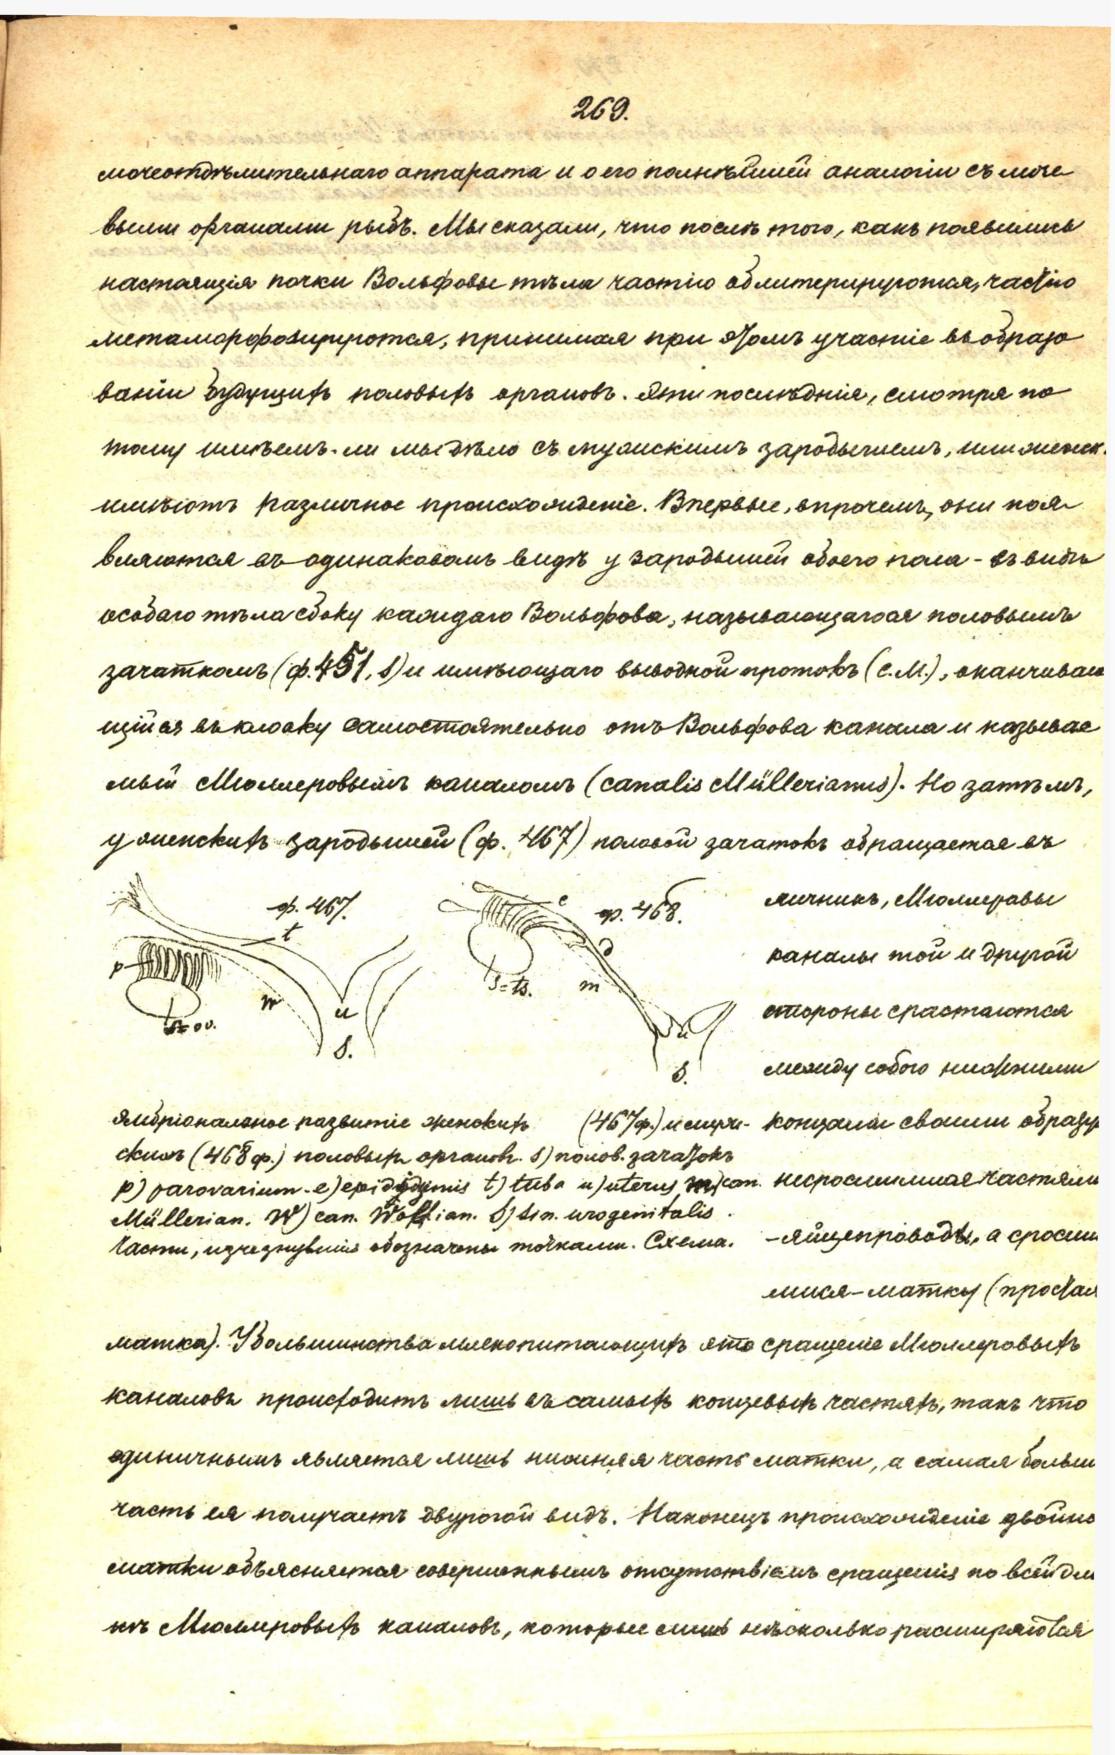 269.
мочеотдѣлительнаго аппарата и о его полнѣйшей аналогіи съ моче
выми органами рыбъ. Мы сказали, что послѣ того, какъ появились
настоящія почки Вольфовы тѣла частію облитерируются, частію
метаморфозируются, принимая при этомъ участіе въ образо
ваніи будущихъ половыхъ органовъ. Эти послѣднія, смотря по
тому имѣемъ-ли мы дѣло съ мужскимъ зародышемъ, или женск.
имѣютъ различное происхожденіе. Впервые, впрочемъ, они поя-
вляются въ одинаковомъ видѣ у зародышей обоего пола - въ видѣ
особаго тѣла сбоку каждаго Вольфова, называющагося половымъ
зачаткомъ (ф. 451, s) и имѣющаго выводной протокъ (c.M.), оканчиваю
щійся въ клоаку самостоятельно отъ Вольфова канала и называе
мый Мюллеровымъ каналомъ (canalis Müllerianus). Но затѣмъ,
у женскихъ зародышей (ф. 467) половой зачатокъ обращается въ
ф. 467.
t
p
w
s=ov.
u
S.
ф. 468.
e
d
s=ts.
m
u
S.
яичникъ, Мюллеровы
каналы той и другой
стороны срастаются
между собою нижними
концами своими образу
несросшимися частями
-яйцепроводы, а сросши
мися-матку (простая
Эмбріональное развитіе женскихъ (467ф.) и мужи-
скихъ (468 ф.) половыхъ органов. s) полов. зачатокъ
p) parovarium. e) epididymis t) tuba u) uterus m) can.
Müllerian. W) can. Wolfian. S) sin. urogenitalis.
Части, изчезнувшія обозначены точками. Схема.
матка). У большинства млекопитающихъ это сращеніе Мюллеровыхъ
каналовъ происходитъ лишь въ самыхъ концевыхъ частяхъ, такъ что
единичнымъ является лишь нижняя часть матки, а самая больш
часть ея получаетъ двурогой видъ. Наконецъ происхожденіе двойно
матки объясняется совершеннымъ отсутствіемъ сращенія по всей дли
нѣ Мюллеровыхъ каналовъ, которые лишь нѣсколько расширяются